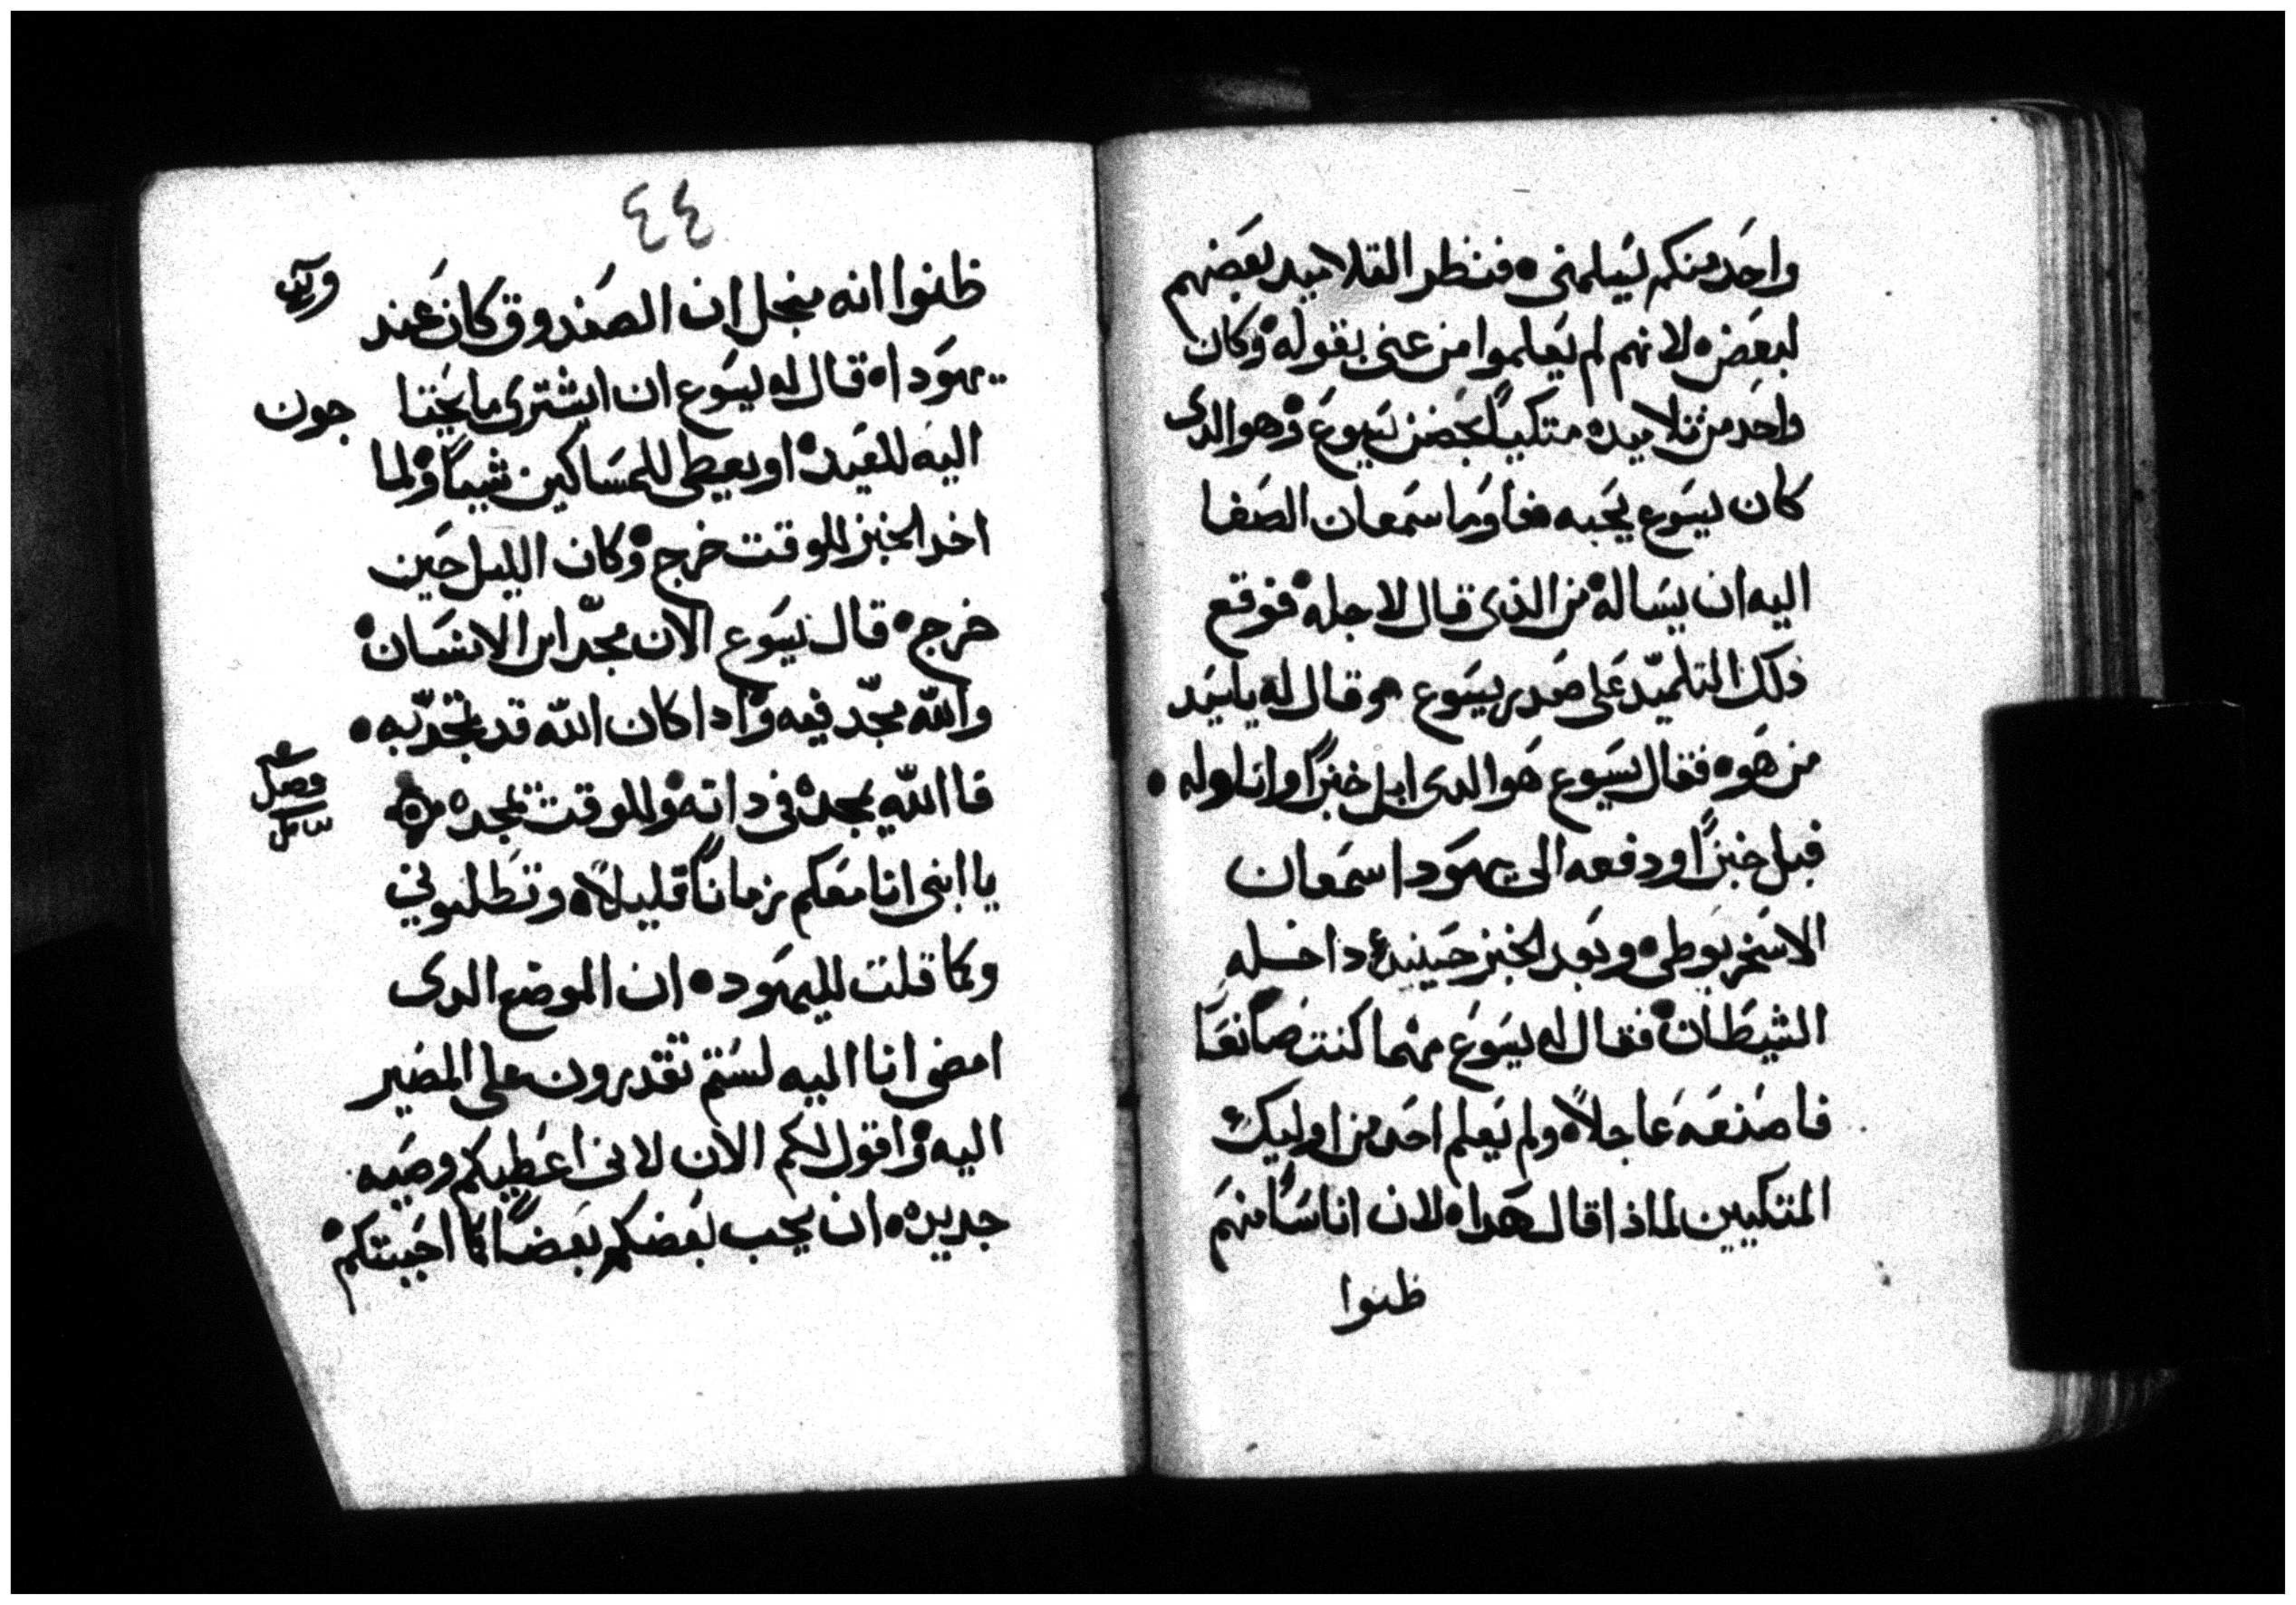 واحد منكم يسلمنى ۰ فنظر التلاميد بعضهم
لبعض ۰ لانهم لم يعلموا من عنى بقوله ۰ وكان
واحد من تلاميده متكيًا بحضن يسوع ۰ وهو الدى
كان يسوع يحبه فاوما سمعان الصفا
اليه ان يساله ۰ من الذى قال لاجله ۰ فوقع
ذلك التلميّد على صدر يسوع ۰ وقال له يا سيد
من هو ۰ فقال يسوع هو الدى ابل خبزًا واناوله ۰
فبل خبزًا ودفعه الى يهودا سمعان
الاسخريوطى ۰ وبعد الخبز حينيدٍ داخله
الشيطان ۰ فقال له يسوع مهما كنت صانعًا
فاصنعه عاجلاً ۰ ولم يعلم احد من اوليك
المتكيين لماذا قال هدا ۰ لان اناسًا منهم
ظنوا
٤٤
ظنوا انه منجل ان الصندوق كان عند
يهودا ۰ قال له يسوع ان ايشترى ما يحتا جون
اليه للعيد ۰ او يعطى للمساكين شييًا ۰ ولما
اخد الخبز للوقت خرج ۰ وكان الليل حين
خرج ۰ قال يسوع الان مجّد ابن الانسان ۰
والله مجّد فيه ۰ وادا كان الله قد تمجّد به ۰
فاالله يمجده فى داته ۰ وللوقت يمجده
فصل
يا ابنى انا معكم زمانًا قليلاً ۰ وتطلبونى
وكما قلت لليهود ۰ ان الموضع الدى
امضى انا اليه لستم تقدرون على المصير
اليه ۰ واقول لكم الان لانى اعطيكم وصيه
جديده ۰ ان يحب بعضكم بعضًا كما احببتكم ۰